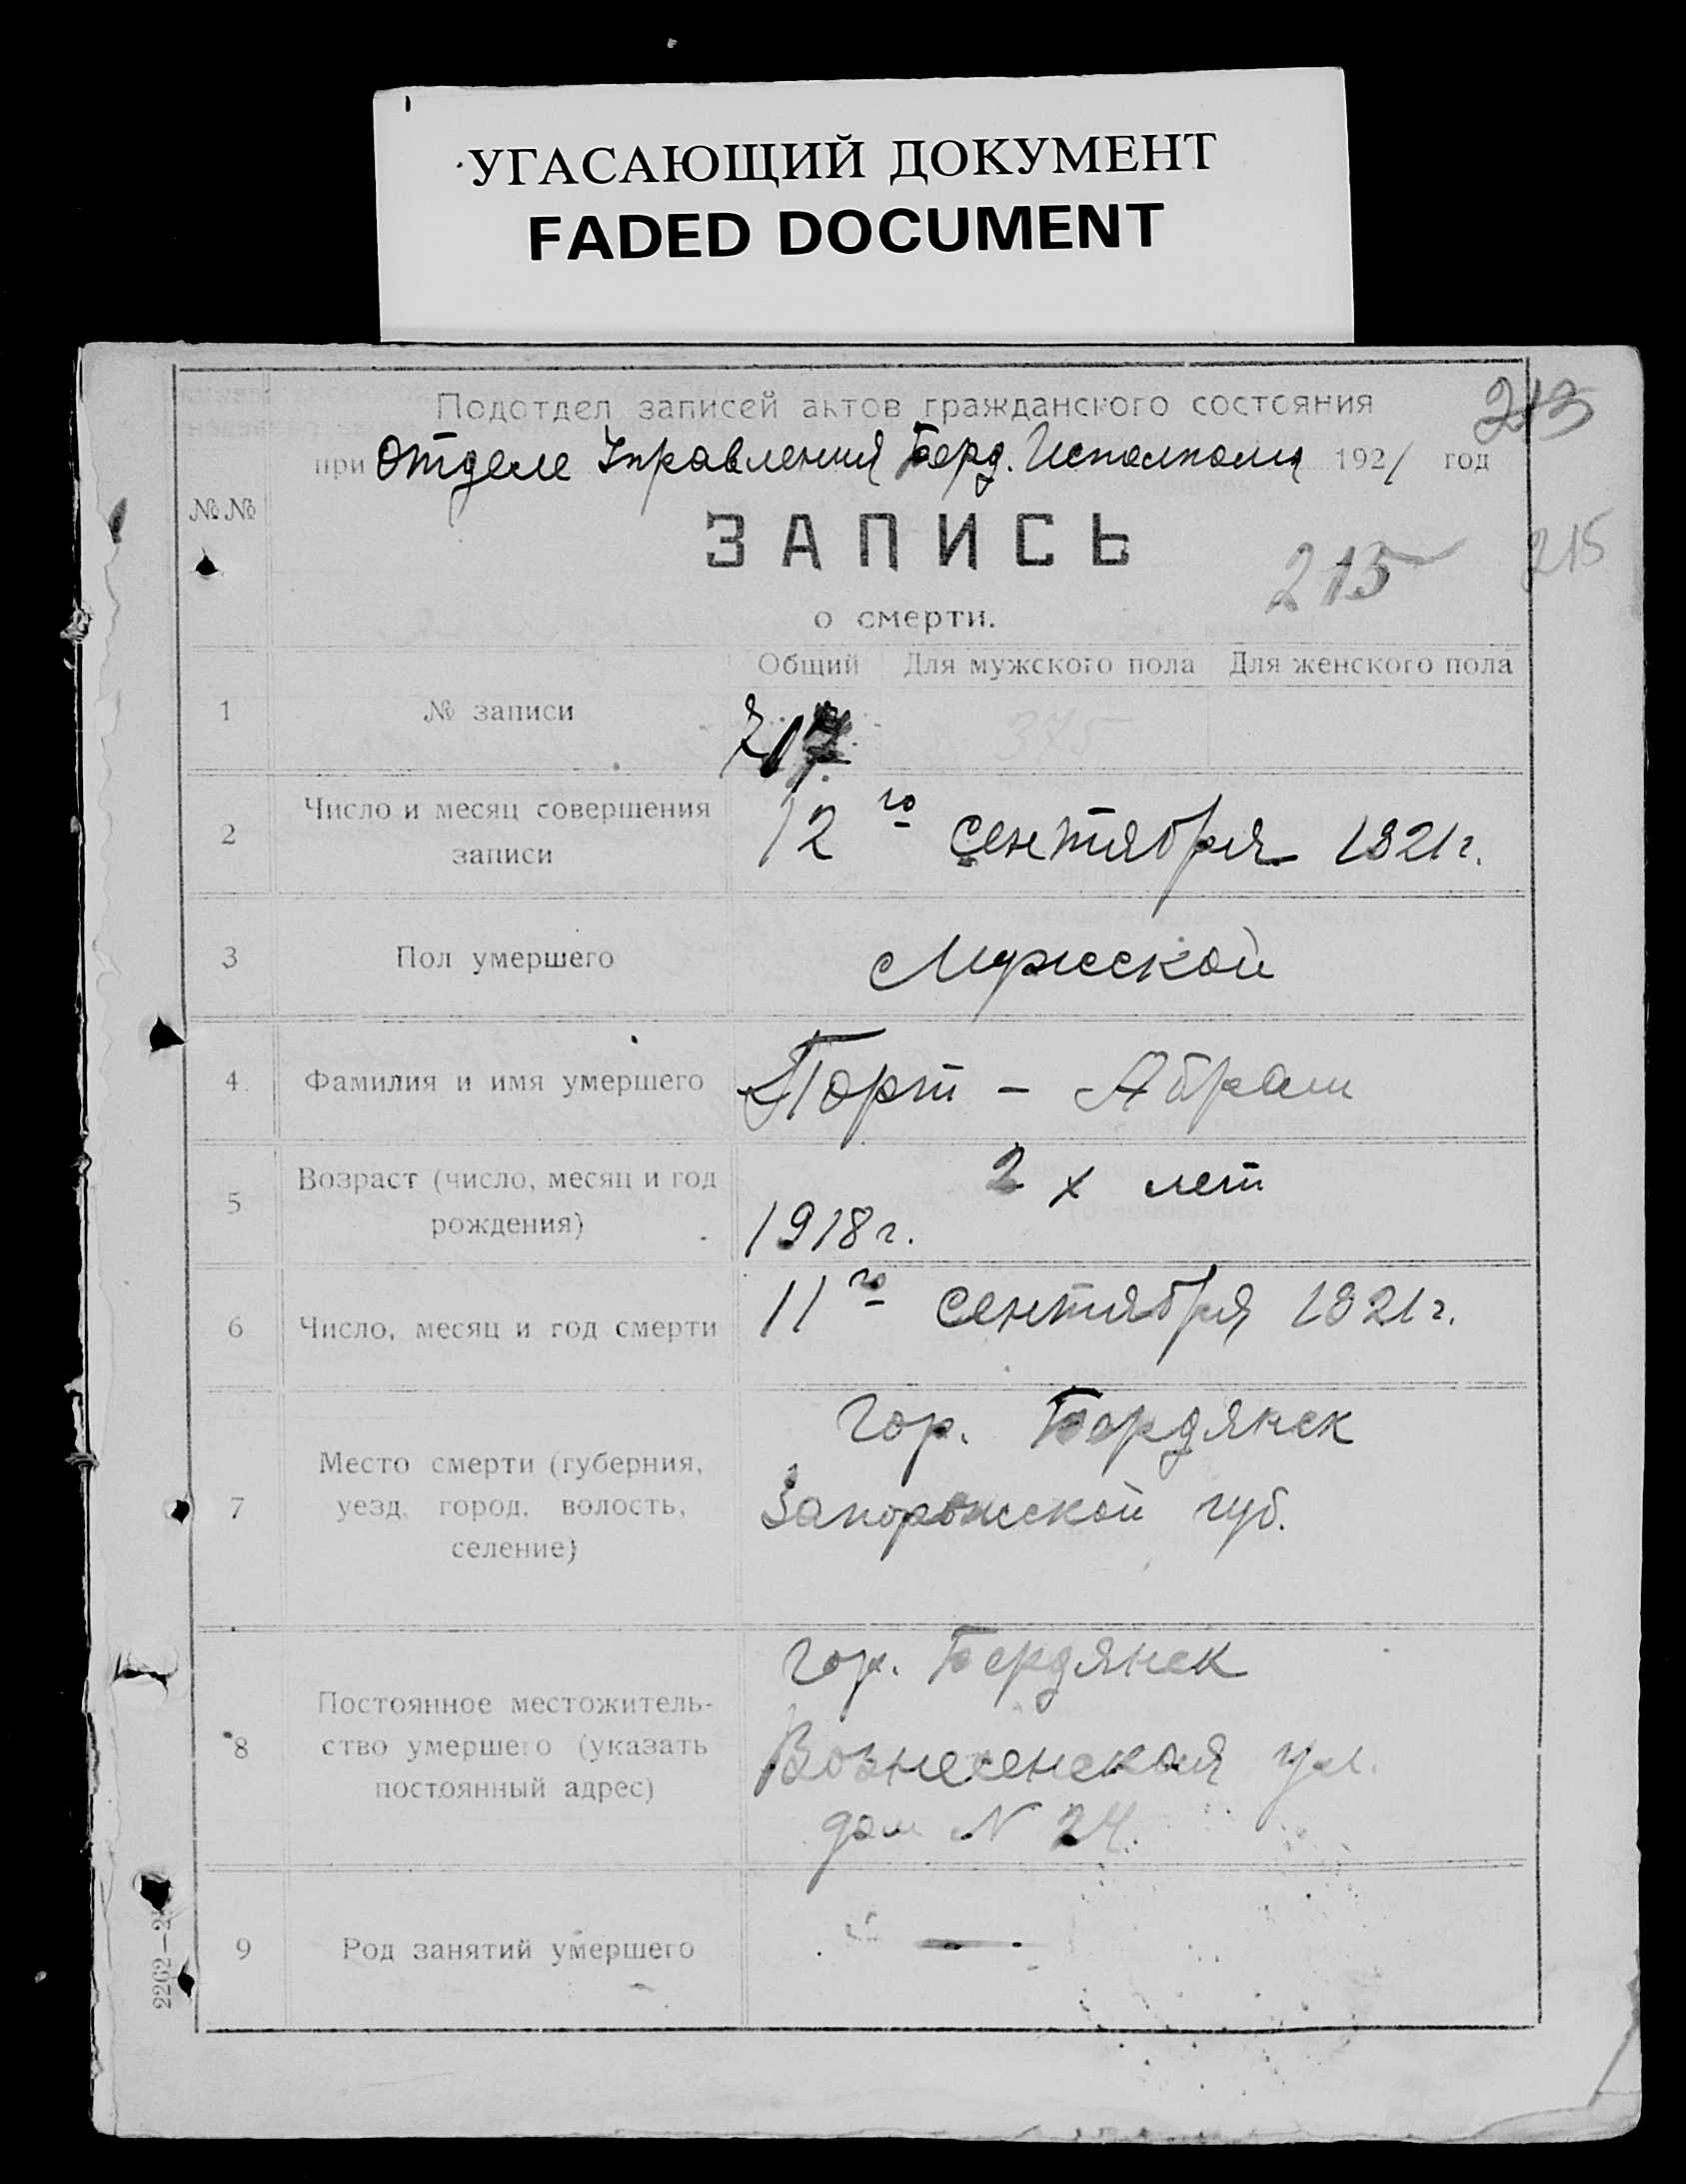 УГАСАЮЩИЙ ДОКУМЕНТ
FADED DOCUMENT
Подотдел записей актов гражданского состояния
213
при Отделе Управления Берд. Исполкома 1921 год
№№
ЗАПИСЬ
215
215
о смерти.
Общий Для мужского пола Для женского пола
1 № записи 717 375
2 Число и месяц совершения записи 12го сентября 1921г.
3 Пол умершего Мужской
4 Фамилия и имя умершего Порт - Абрам
5 Возраст (число, месяц и год рождения) 2 х лет
1918г.
6 Число, месяц и год смерти 11го сентября 1921г.
7 Место смерти (губерния, уезд, город, волость, селение) гор. Бердянск
Запорожской губ.
8 Постоянное местожитель-
ство умершего (указать
постоянный адрес)
гор. Бердянск
Вознесенская ул.
дом N 24.
9 Род занятий умершего —